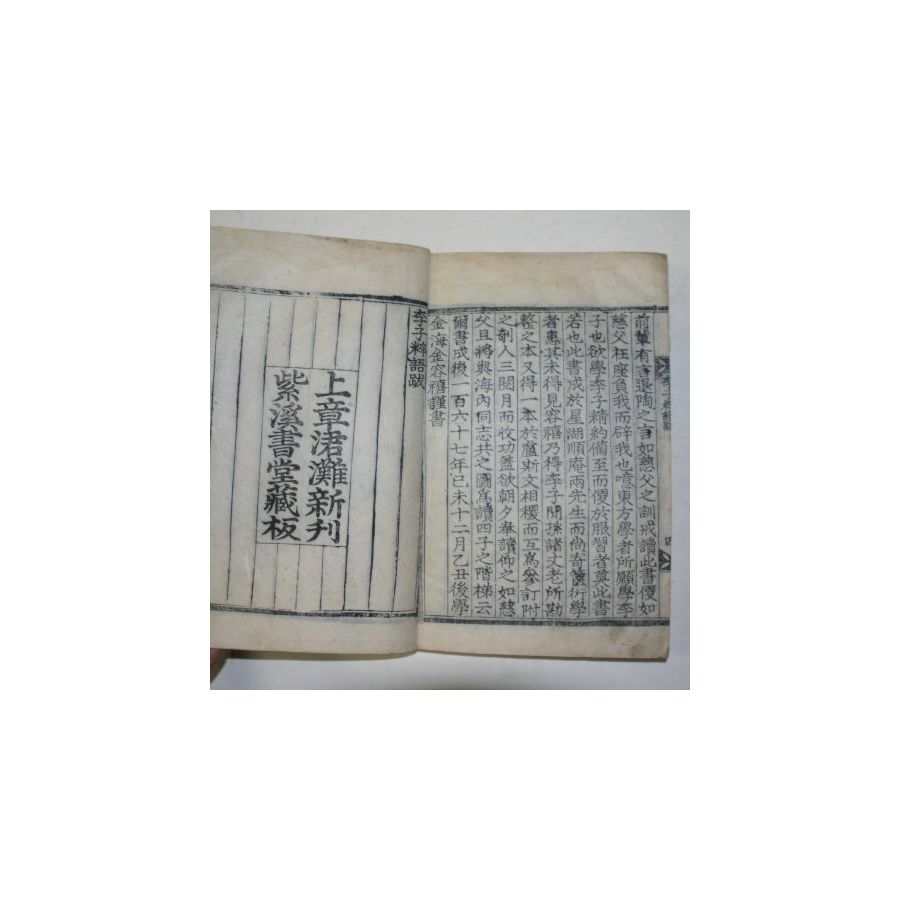 前輩有言退陶之言如慈父之訓戒讀此書僾如
慈父在座負我而辟我也噫東方學者所願學李
子也欲學李子精約備至而便於服習者莫此書
若也此書成於星湖順庵兩先生而尚寄篋衍學
者患其未得見容禧乃得李子聞孫諸文老所勘
整之本又得一本於盧斯文相稷而互爲參訂附
之剞人三閱月而收功蓋欲朝夕奉讀仰之如慈
父且將與海內同志共之圖爲讀四子之階梯云
爾書成後一百六十七年己未十二月乙丑後學
金海金容禧謹書
李子粹語跋
上章涒灘新刊
紫溪書堂藏板